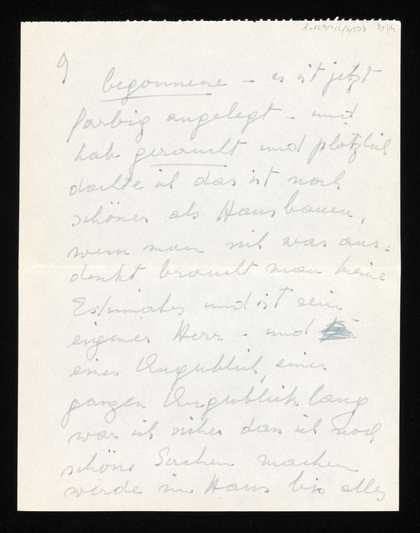 9
begonnene - es ist jetzt
farbig angelegt - und
hab geraucht und plötzlich
dachte ich das ist noch
schöner als Haus bauen,
wenn man sich was aus-
denkt braucht man keine
Estimates und ist sein
eigener Herr - und
einen Augenblick, einen
ganzen Augenblick lang
war ich sicher dass ich noch
schöne Sachen machen
werde im Haus bis alles